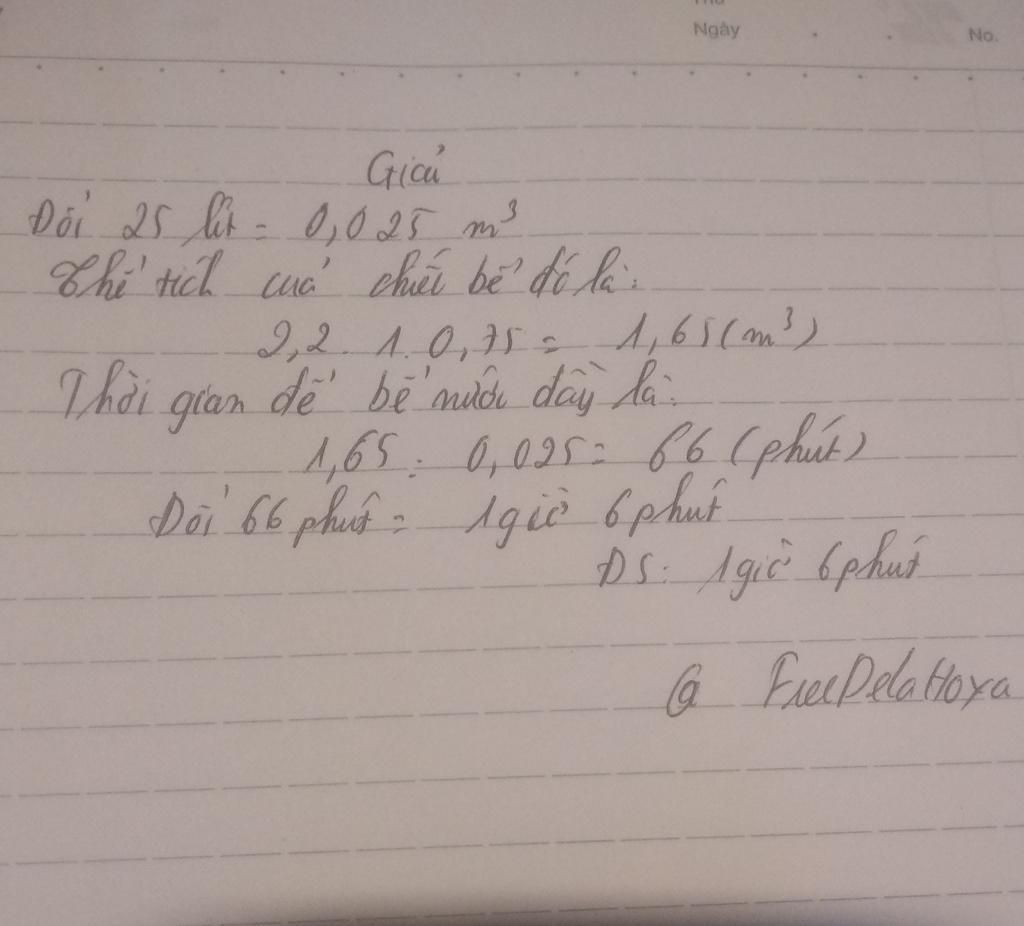 Ngày No.
Giải
Đổi 25 lít = 0,025 m³
Thể tích của chiếc bể đó là:
2,2 . 1 . 0,75 = 1,65 (m³)
Thời gian để bể nước đầy là:
1,65 : 0,025 = 66 (phút)
Đổi 66 phút = 1 giờ 6 phút
ĐS: 1 giờ 6 phút
@ FreeDelaHoya